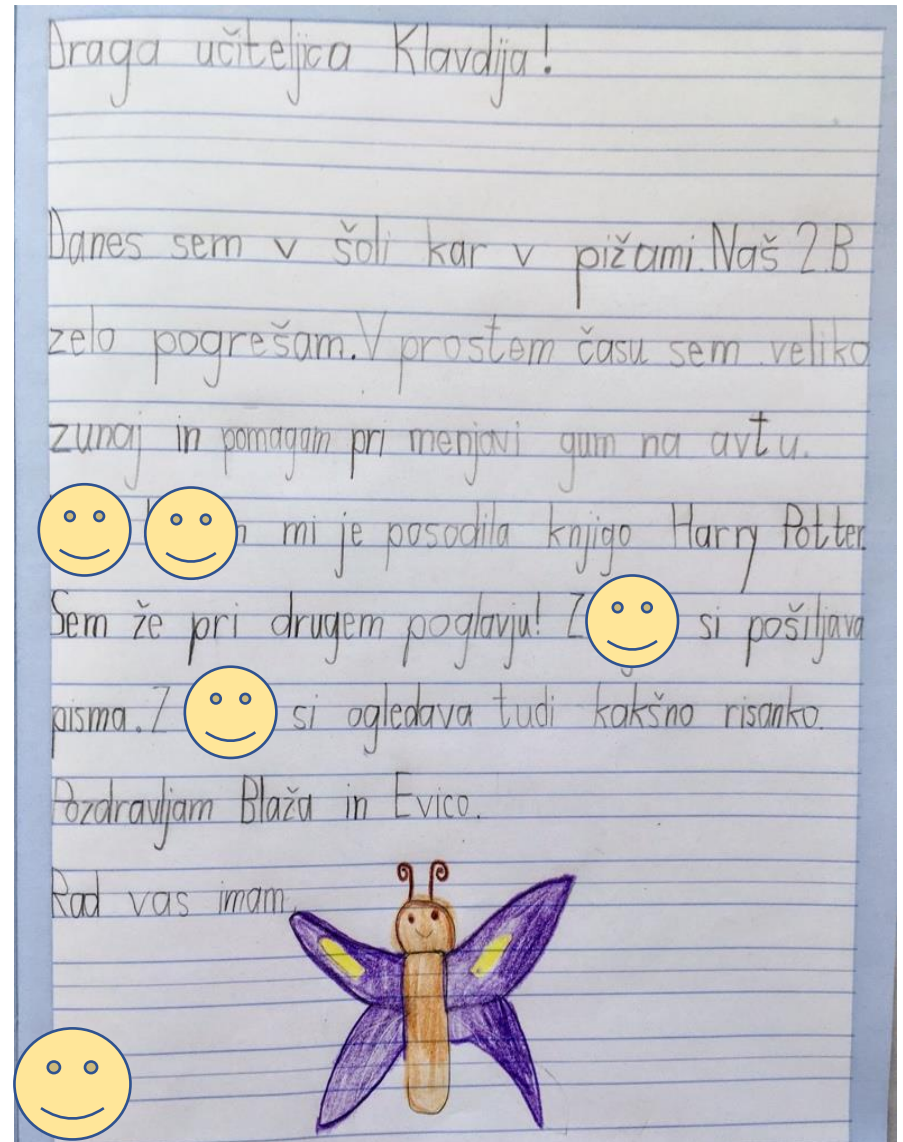 Draga učiteljica Klavdija!
Danes sem v šoli kar v pižami. Naš 2.B
zelo pogrešam. V prostem času sem veliko
zunaj in pomagam pri menjavi gum na avtu.
mi je posodila knjigo Harry Potter.
Sem že pri drugem poglavju! Z si pošiljava
pisma. Z si ogledava tudi kakšno risanko.
Pozdravljam Blaža in Evico.
Rad vas imam.